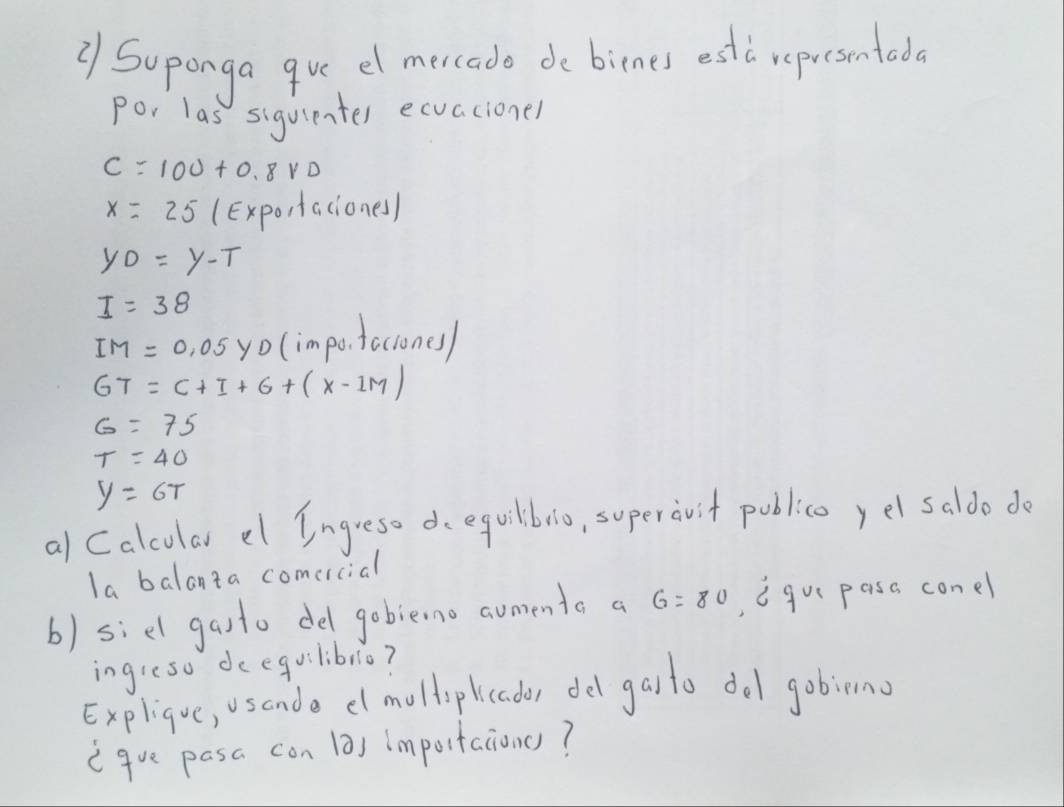 2) Suponga que el mercado de bienes está representada
por las siguientes ecuaciones
C = 100 + 0.8 YD
X = 25 (Exportaciones)
YD = Y - T
I = 38
IM = 0,05 YD (importaciones)
GT = C + I + G + (X - IM)
G = 75
T = 40
Y = GT
a) Calcular el Ingreso de equilibrio, superávit publico y el saldo de
la balanza comercial
b) si el gasto del gobierno aumenta a G = 80, ¿que pasa con el
ingreso de equilibrio?
Explique, usando el multiplicador del gasto del gobierno
¿que pasa con las importaciones?